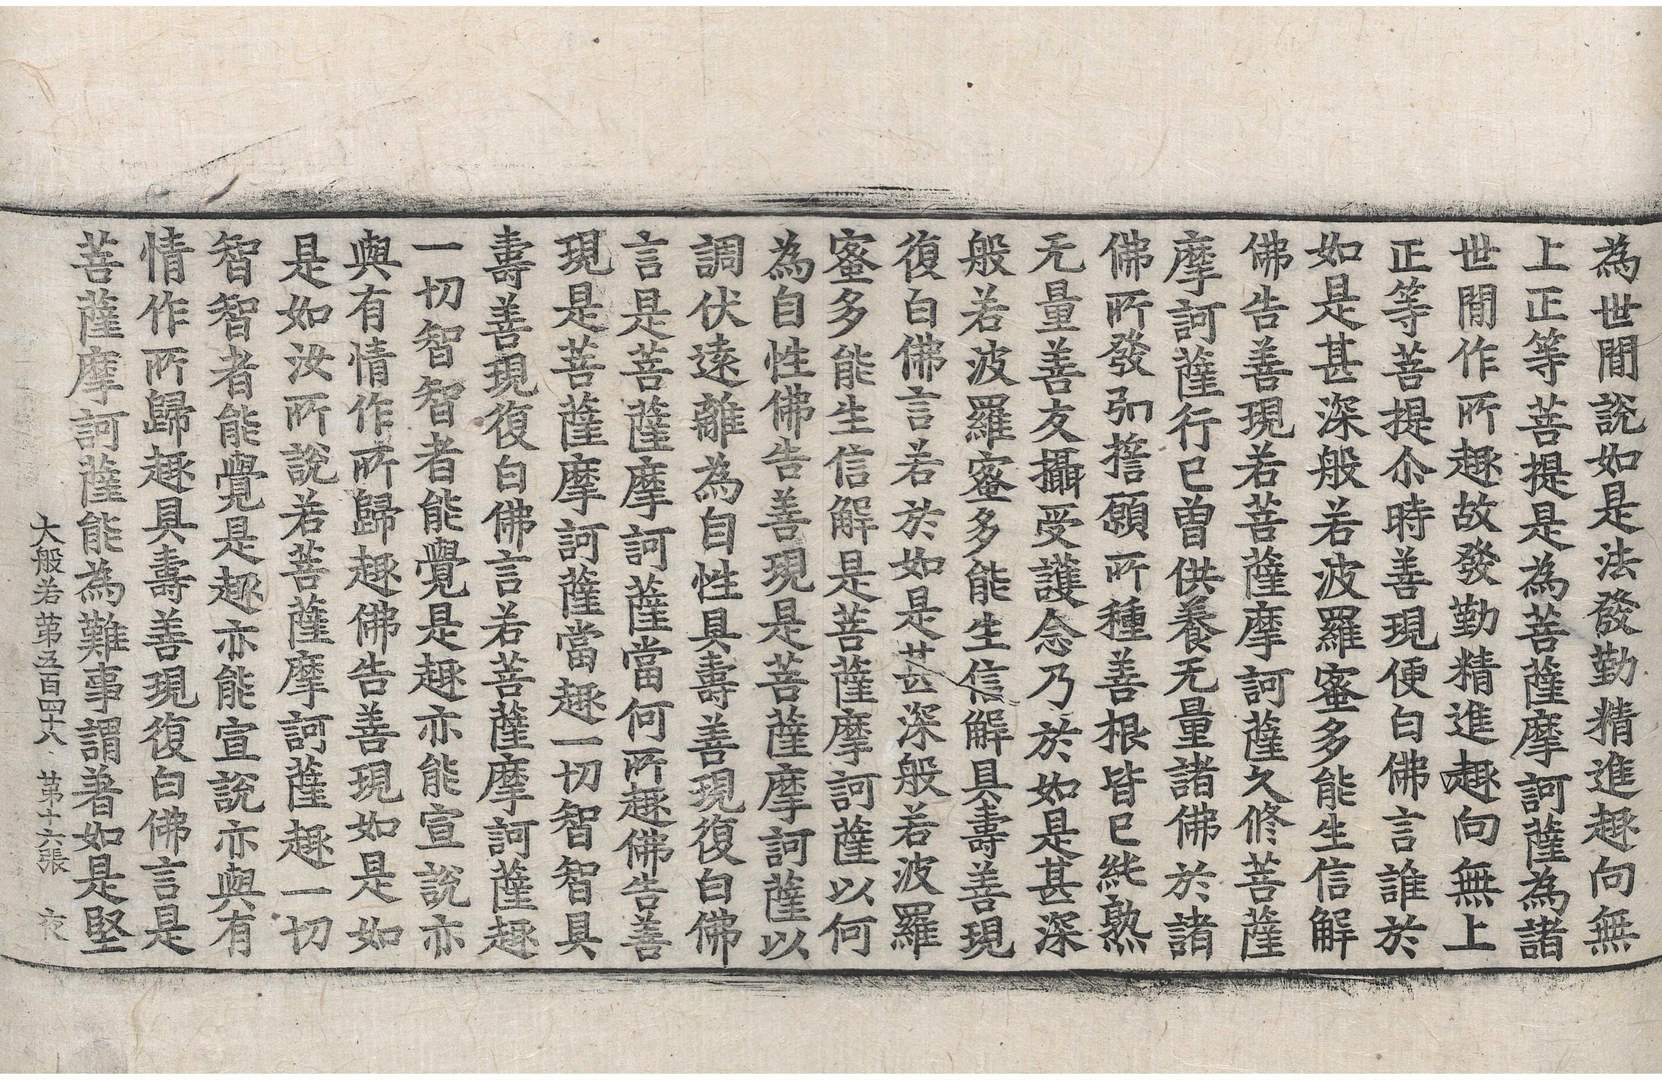 為世間說如是法發勤精進趣向無
上正等菩提是為菩薩摩訶薩為諸
世間作所趣故發勤精進趣向無上
正等菩提尒時善現便白佛言誰於
如是甚深般若波羅蜜多能生信解
佛告善現若菩薩摩訶薩久修菩薩
摩訶薩行已曾供養无量諸佛於諸
佛所發弘誓願所種善根皆已純熟
无量善友攝受護念乃於如是甚深
般若波羅蜜多能生信解具壽善現
復白佛言若於如是甚深般若波羅
蜜多能生信解是菩薩摩訶薩以何
為自性佛告善現是菩薩摩訶薩以
調伏遠離為自性具壽善現復白佛
言是菩薩摩訶薩當何所趣佛告善
現是菩薩摩訶薩當趣一切智智具
壽善現復白佛言若菩薩摩訶薩趣
一切智智者能覺是趣亦能宣說亦
與有情作所歸趣佛告善現如是如
是如汝所說若菩薩摩訶薩趣一切
智智者能覺是趣亦能宣說亦與有
情作所歸趣具壽善現復白佛言是
菩薩摩訶薩能為難事謂著如是堅
大般若第五百四十八 第十六張 夜